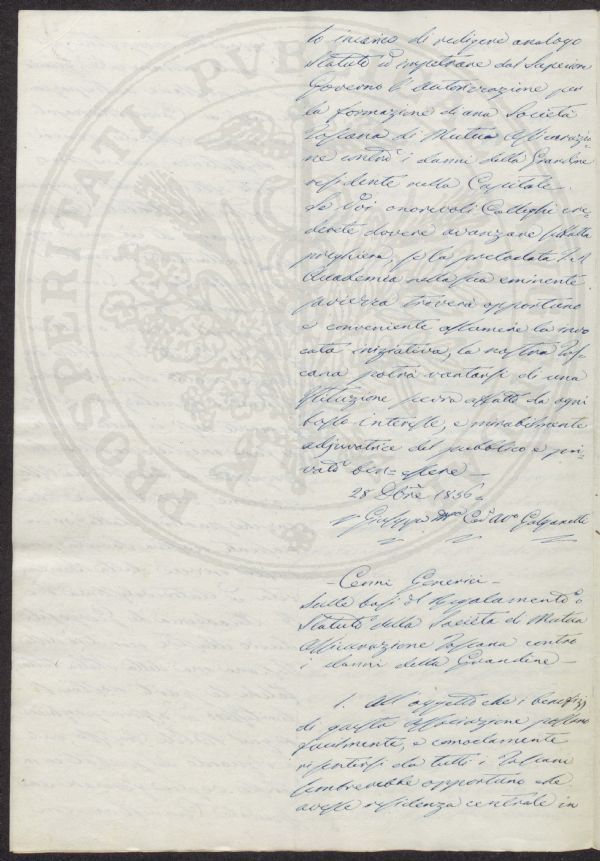 lo incarico di redigere analogo
Statuto, ed impetrare dal Superior
Governo l'autorizazione per
la formazione di una Società
Toscana di Mutua Assicurazio-
ne contro i danni della Grandine
residente nella Capitale.
Se Voi onorevoli Colleghi cre-
derete dovere avanzare siffatta
preghiera, se la prelodata I. R.
Accademia nella sua eminente
saviezza troverà opportuno
e conveniente assumere la invo
cata iniziativa, la nostra Tos-
cana potrà vantarsi di una
Istituzione pura affatto da ogni
basso interesse, e mirabilmente
adjuvatrice del pubblico e pri-
vato ben-essere —
28 Dbre 1856.
Giuseppe Galganetti
— Cenni Generici —
Sulle basi del Regolamento o
Statuto della Società di Mutua
Assicurazione Toscana contro
i danni della Grandine —
1. All'oggetto che i benefizj
di questa Associazione possano
facilmente, e comodamente
risentirsi da tutti i Toscani
sembrerebbe opportuno che
avesse residenza centrale in
PROSPERITATI PUBLICAE